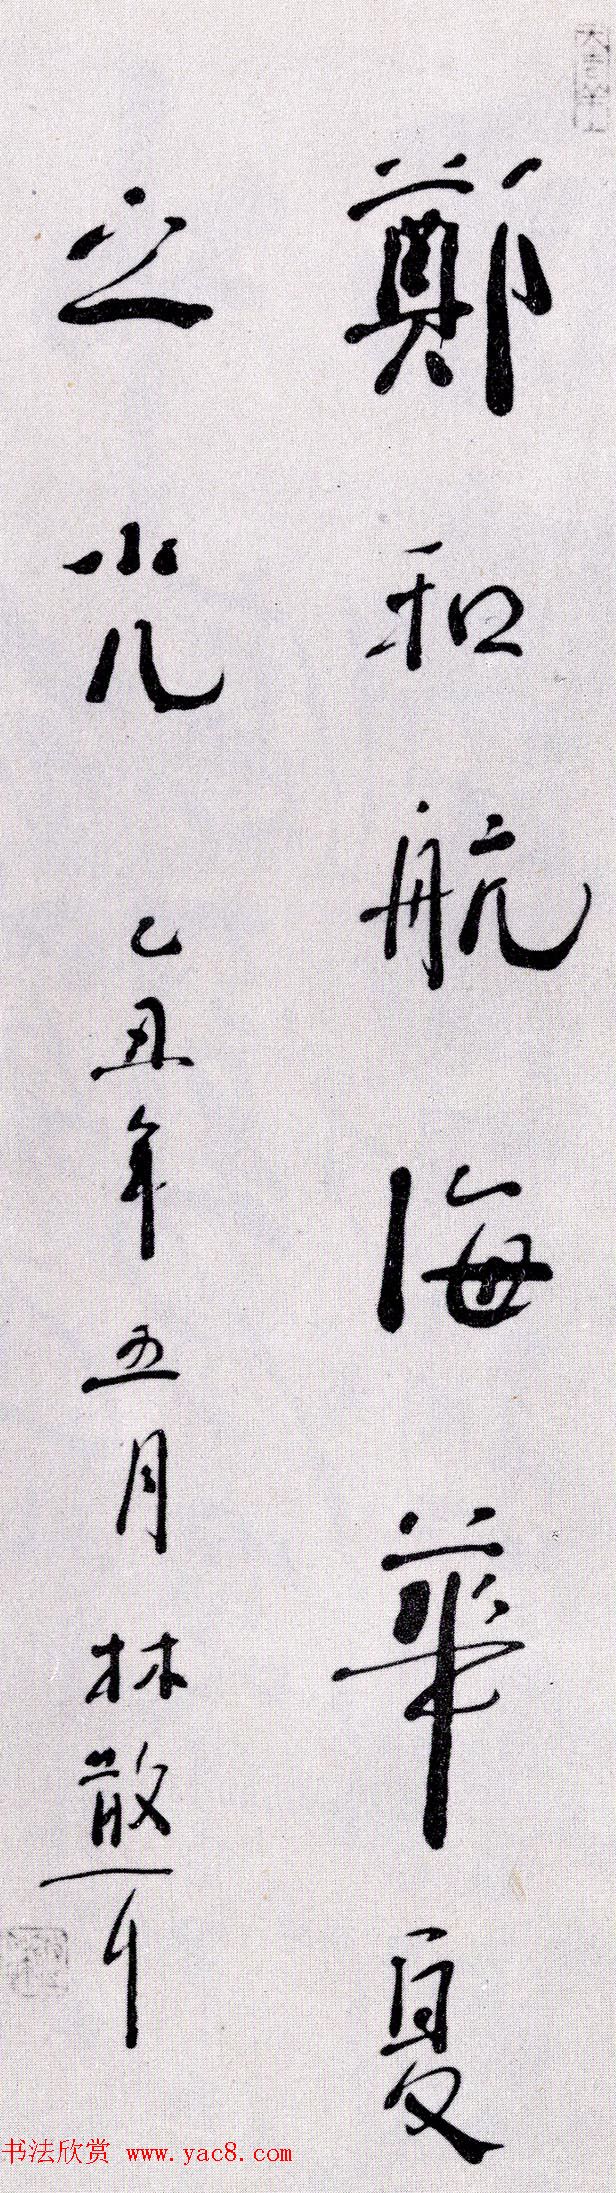 鄭和航海華夏
之光
乙丑年五月林散耳
书法欣赏 www.yac8.com